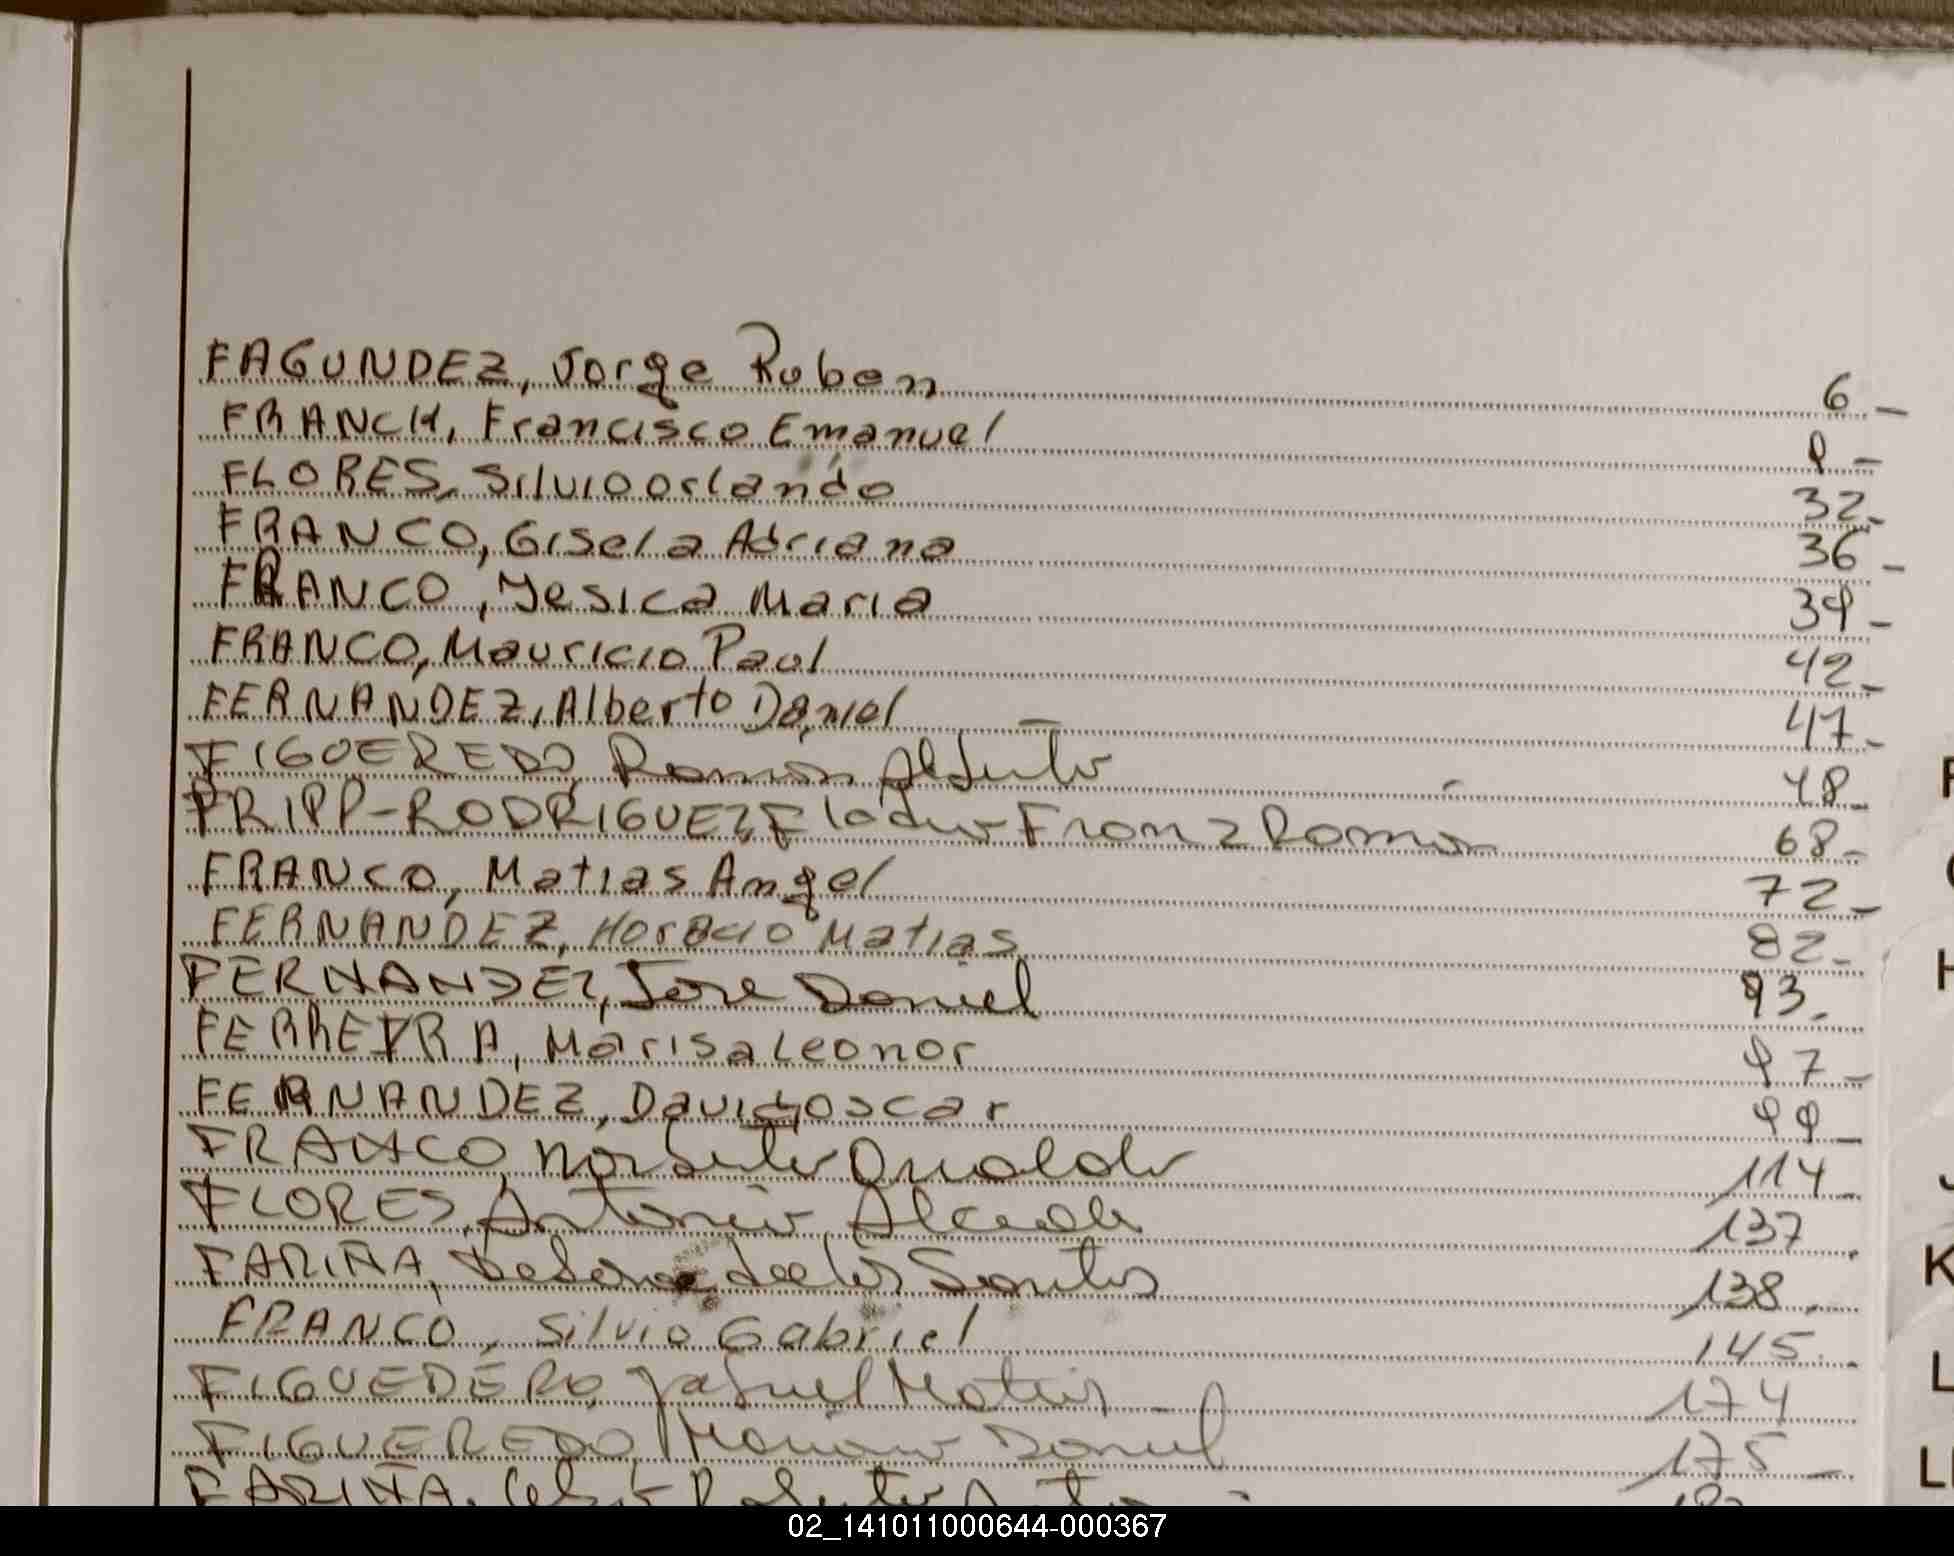 FAGUNDEZ, Jorge Ruben 6-
FRANCH, Francisco Emanuel 9-
FLORES, Silvio Orlando 32-
FRANCO, Gisela Adriana 36-
FRANCO, Yesica Maria 39-
FRANCO, Mauricio Paul 42-
FERNANDEZ, Alberto Daniel - 47-
FIGUEREDO, Ramón Alberto 48-
FRIPP-RODRIGUEZ, Franz Román 68-
FRANCO, Matias Angel 72-
FERNANDEZ, Horacio Matias 82-
FERNANDEZ, Jose Daniel 93.
FERREYRA, Marisa Leonor 97-
FERNANDEZ, David Oscar 99-
FRANCO, Norberto Osvaldo 114-
FLORES, Antonio Alcides 137.
FARIÑA, de los Santos 138.
FRANCO, Silvio Gabriel 145.
FIGUEDERO, Matias 174
FIGUEREDO, Mariano Daniel 175-
FARIÑA,
F
H
J
K
L
LL
02_141011000644-000367